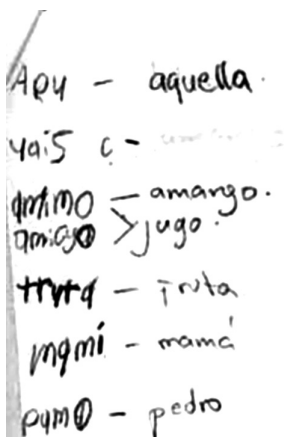 Aqu - aquella.
yais c -
amimo - amango.
amigo > jugo.
tryta - fruta
mqmi - mamá
pqmo - pedro